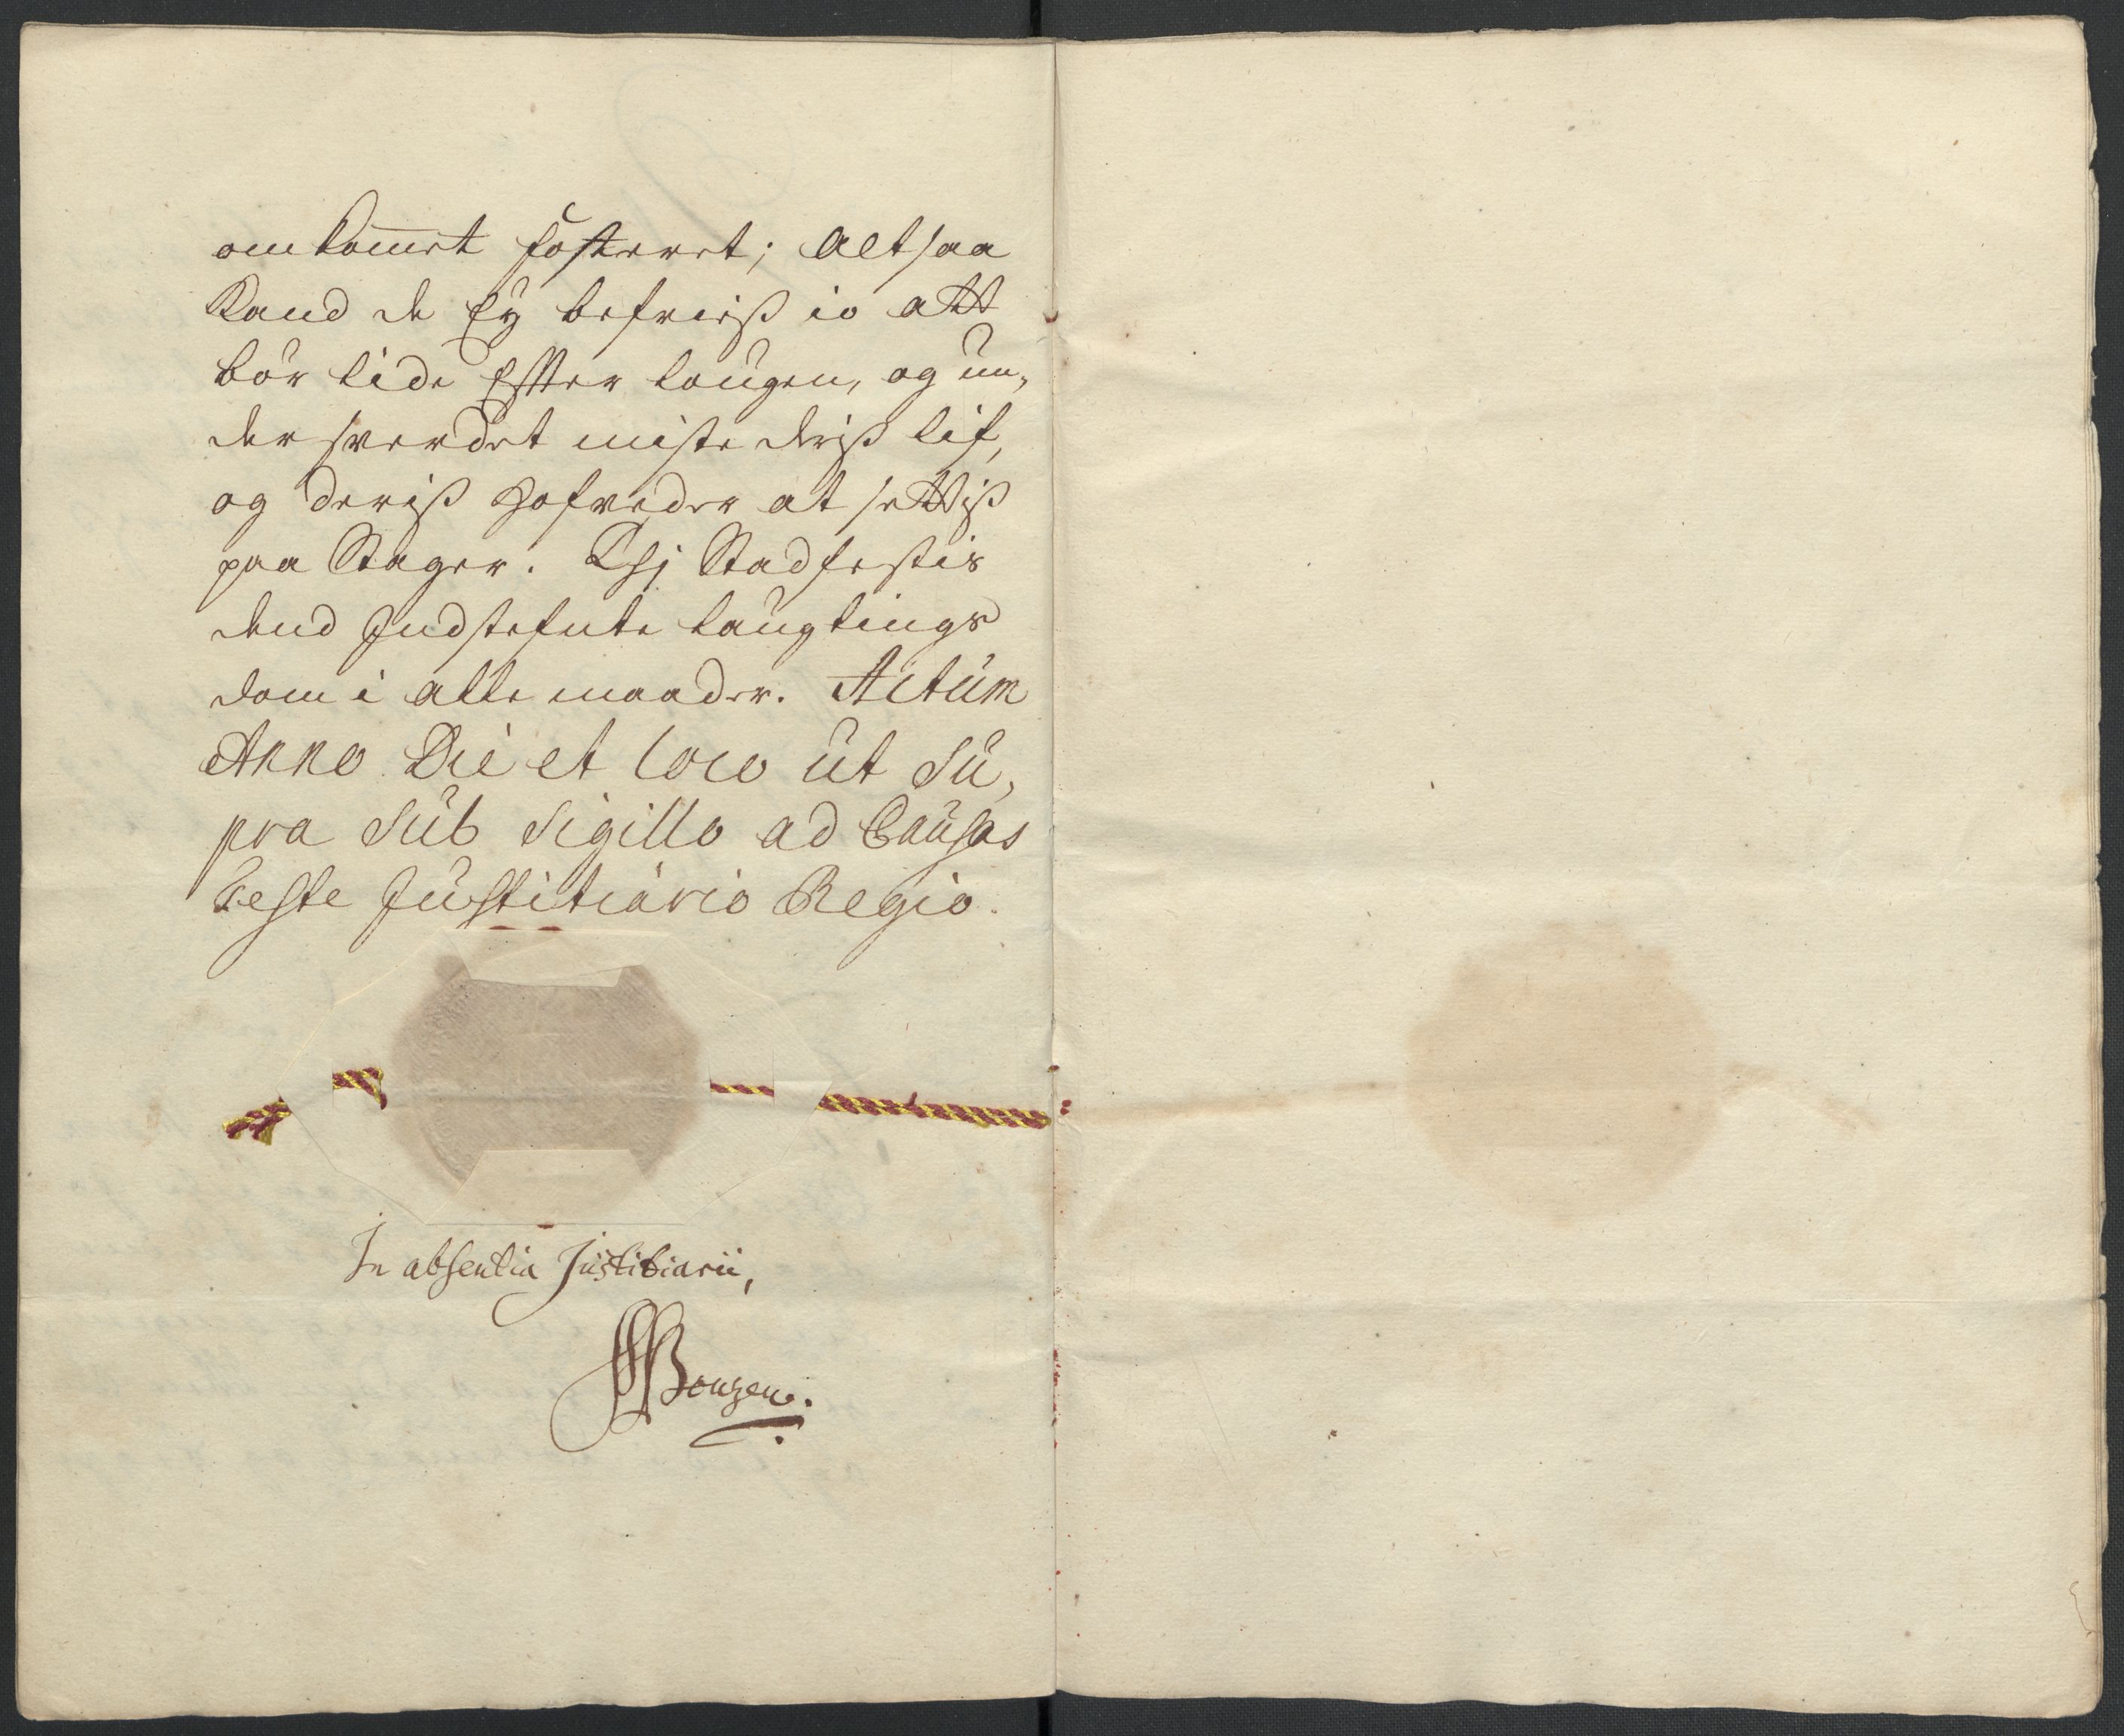 omkom̄et fosteret; altsaa
Kand de Ey befriiss io att
bör lide Effter lougen, og un,
der sverdet miste deriss lif,
og deriss Hofveder at settiss
paa Stager. Thj Stadfestis
dend Indstefnte laugtings
dom i alle maader. Actum
Anno Die et loco ut Su,
pra Sub Sigillo ad Causas
Teste Justitiario Regio.
In absentia Justitiarii,
Bonsen.